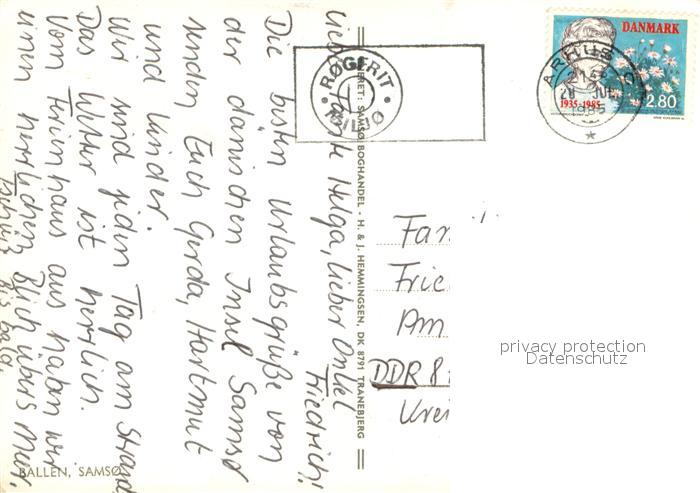 Liebe Tante Helga, lieber Onkel
Friedrich!
Die besten Urlaubsgrüße von
der dänischen Insel Samsø
senden Euch Gerda, Hartmut
und Kinder.
Wir sind jeden Tag am Strand
Das Wetter ist herrlich.
Vom Ferienhaus aus haben wir
einen herrlichen Blick übers Meer.
Tschüß bis bald
BALLEN, SAMSØ
ERET: SAMSØ BOGHANDEL - H. & J. HEMMINGSEN, DK 8791 TRANEBJERG
RØGFRIT
MILJØ
DANMARK
1935-1985
2.80
ARHUS C
1985
Fam
Frie
Am
DDR 8
Krei
privacy protection
Datenschutz